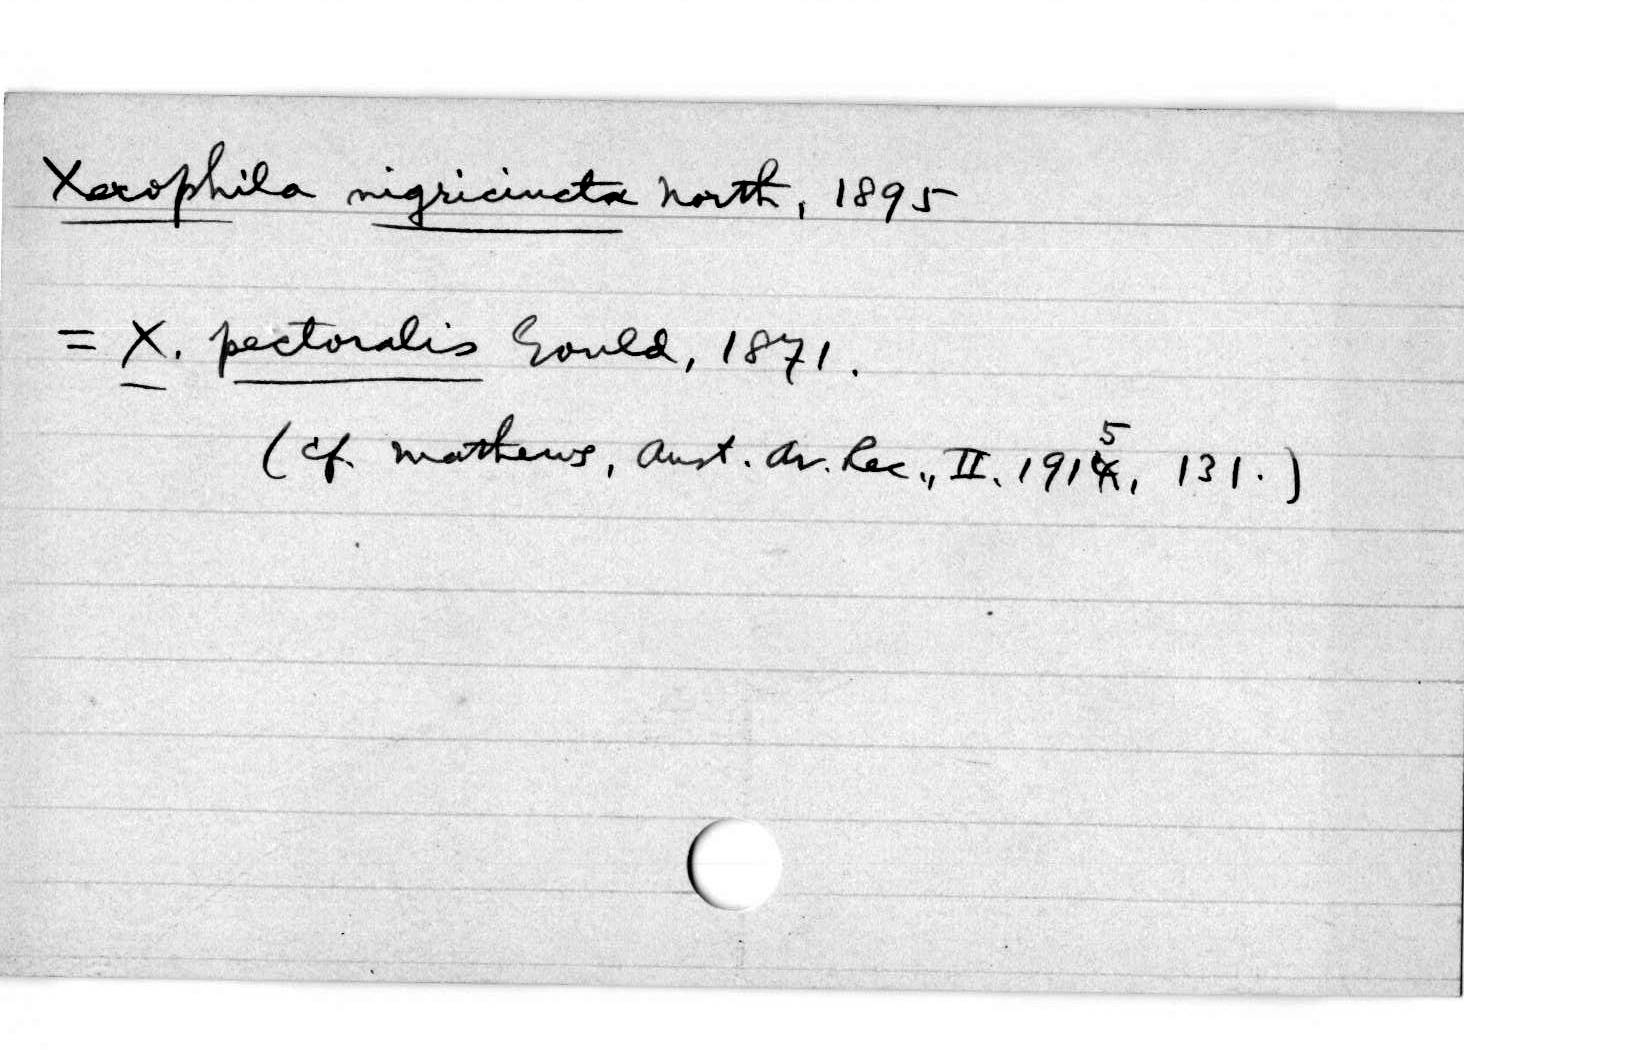 Xerophila nigricincta North, 1895
= X. pectoralis Gould, 1871.
(cf. Mathews, Aust. Av. Rec., II. 1915, 131.)